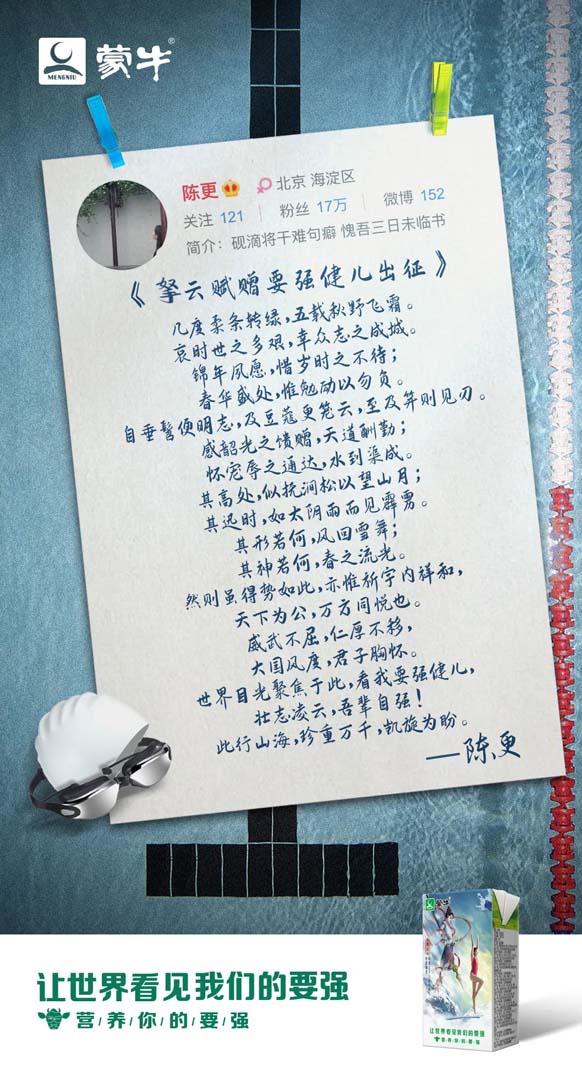 MENGNIU
蒙牛®
陈更 北京 海淀区
关注 121 粉丝 17万 微博 152
简介：砚滴将干难句癖 愧吾三日未临书
《拏云赋赠要强健儿出征》
几度柔条转绿，五载秋野飞霜。
哀时世之多艰，幸众志之成城。
锦年夙愿，惜岁时之不待；
春华盛处，惟勉励以勿负。
自垂髫便明志，及豆蔻更笼云，至及笄则见刃。
感韶光之馈赠，天道酬勤；
怀宠辱之通达，水到渠成。
其高处，似抚涧松以望山月；
其迅时，如太阴雨而见霹雳。
其形若何，风回雪舞；
其神若何，春之流光。
然则虽得势如此，亦惟祈宇内祥和，
天下为公，万方同悦也。
威武不屈，仁厚不移，
大国风度，君子胸怀。
世界目光聚焦于此，看我要强健儿，
壮志凌云，吾辈自强！
此行山海，珍重万千，凯旋为盼。
——陈更
让世界看见我们的要强
营/养/你/的/要/强
蒙牛
让世界看见我们的要强
营/养/你/的/要/强